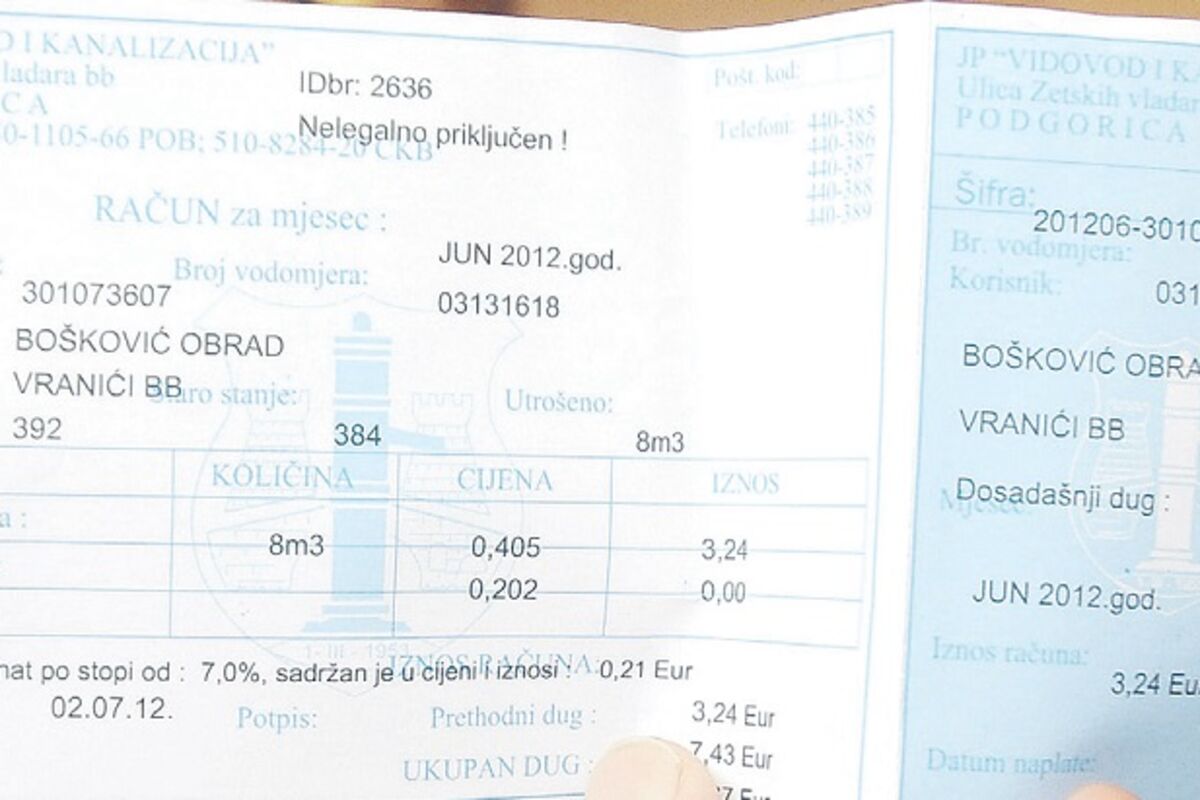 I KANALIZACIJA"
ladara bb
C A
0-1105-66 POB; 510-8284-20 CKB
IDbr: 2636
Nelegalno priključen !
Pošt. kod:
Telefoni: 440-385
440-386
440-387
440-388
440-389
RAČUN za mjesec :
JUN 2012.god.
Broj vodomjera:
301073607
03131618
BOŠKOVIĆ OBRAD
VRANIĆI BB
Staro stanje:
Utrošeno:
392
384
8m3
KOLIČINA
CIJENA
IZNOS
a :
8m3
0,405
3,24
0,202
0,00
1-III-1953
IZNOS RAČUNA:
nat po stopi od : 7,0%, sadržan je u cijeni i iznosi : 0,21 Eur
02.07.12.
Potpis:
Prethodni dug :
3,24 Eur
UKUPAN DUG :
7,43 Eur
7 Eur
JP "VIDOVOD I KA
Ulica Zetskih vladar
PODGORICA
Šifra:
201206-3010
Br. vodomjera:
Korisnik:
031
BOŠKOVIĆ OBRA
VRANIĆI BB
Dosadašnji dug :
Mjesec:
JUN 2012.god.
Iznos računa:
3,24 Eu
Datum naplate: